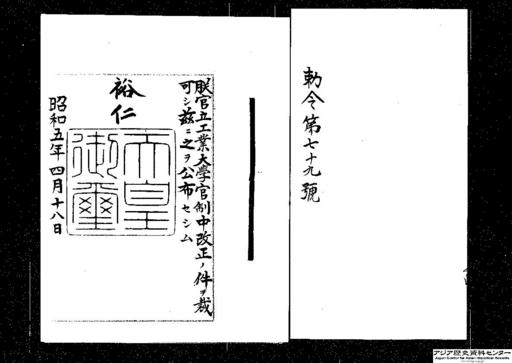 勅令第七十九號
朕官立工業大學官制中改正ノ件ヲ裁
可シ茲ニ之ヲ公布セシム
裕仁
天皇
御璽
昭和五年四月十八日
アジア歴史資料センター
Japan Center for Asian Historical Records